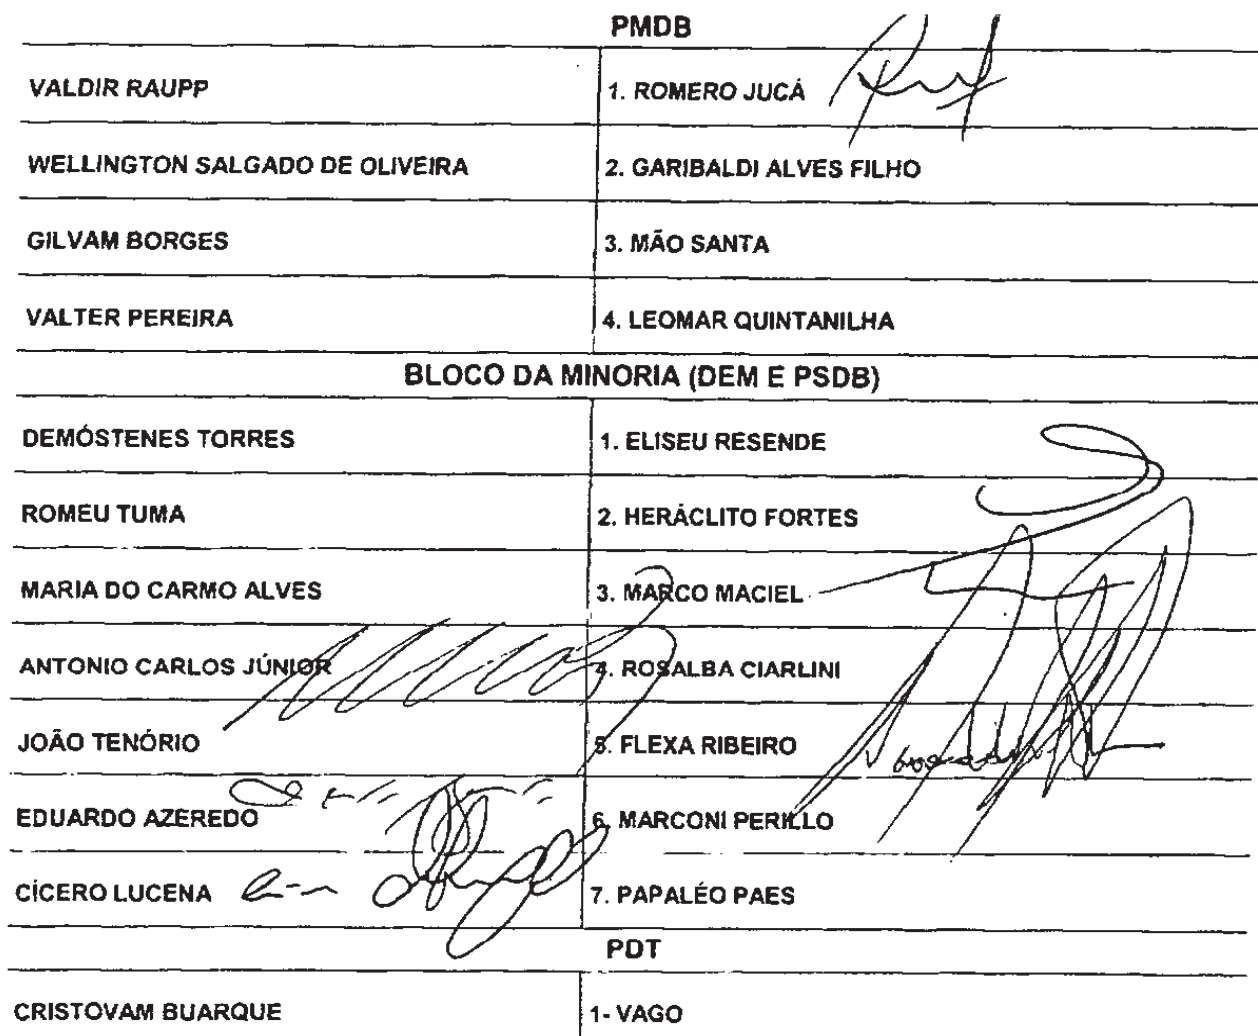 PMDB
VALDIR RAUPP 1. ROMERO JUCÁ
WELLINGTON SALGADO DE OLIVEIRA 2. GARIBALDI ALVES FILHO
GILVAM BORGES 3. MÃO SANTA
VALTER PEREIRA 4. LEOMAR QUINTANILHA
BLOCO DA MINORIA (DEM E PSDB)
DEMÓSTENES TORRES 1. ELISEU RESENDE
ROMEU TUMA 2. HERÁCLITO FORTES
MARIA DO CARMO ALVES 3. MARCO MACIEL
ANTONIO CARLOS JÚNIOR 4. ROSALBA CIARLINI
JOÃO TENÓRIO 5. FLEXA RIBEIRO
EDUARDO AZEREDO 6. MARCONI PERILLO
CÍCERO LUCENA 7. PAPALÉO PAES
PDT
CRISTOVAM BUARQUE 1- VAGO